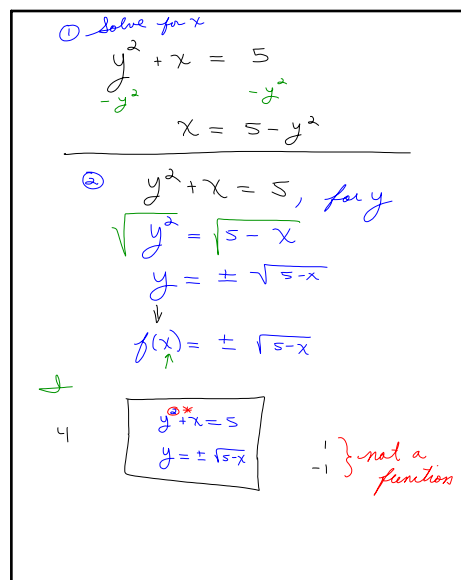 ① Solve for x
y² + x = 5
-y² -y²
x = 5 - y²
② y² + x = 5, for y
√y² = √5 - x
y = ± √5-x
↓
f(x) = ± √5-x
↑
y² + x = 5 *
4 y = ± √5-x 1
-1 } not a
function